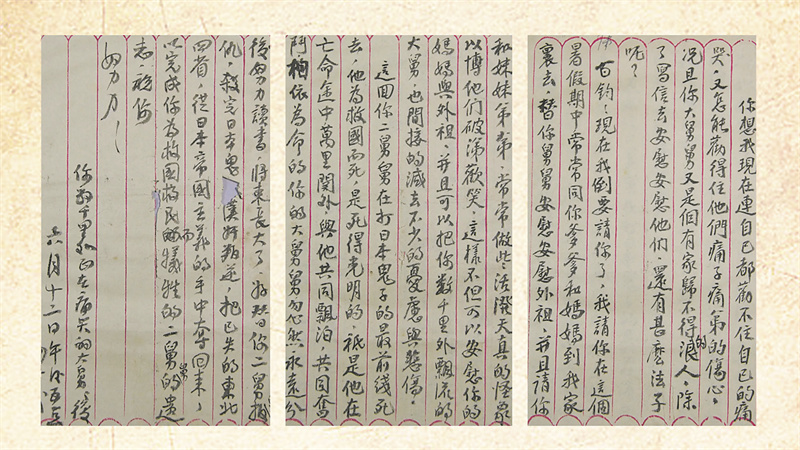 你想我現在連自已都勸不住自已的痛
哭，又怎能勸得住他們痛子痛弟的傷心。
况且你大舅舅又是個有家歸不得的浪人，除
了寫信去安慰安慰他們，還有甚麼法子
呢？
百鈞：現在我倒要請你了，我請你在這個
暑假期中常常同你爹爹和媽媽到我家
裏去，替你舅舅安慰安慰外祖，并且請你
和妹妹弟弟，常常做些活潑天真的怪象
以博他们破涕歡笑，這樣不但可以安慰你的
媽媽與外祖，并且可以把你数千里外飄流的
大舅，也間接的减去不少的憂慮與悲傷。
這回你二舅舅在打日本鬼子的最前綫死
去，他為救國而死，是死得光明的，祇是他在
亡命途中萬里関外，與他共同飄泊，共同奮
鬥相依為命的你的大舅舅忽然永遠分
後努力讀書，将来長大了，好 你二舅報
仇，殺完日本鬼 漢奸叛逆，把已失的東北
四省，從日本帝國主義的手中奪回来，
以完成你為救國救民而犧牲的二舅舅的遺
志，祝你
努力！
你 千里 正在痛哭的大舅
六月十二日午后五